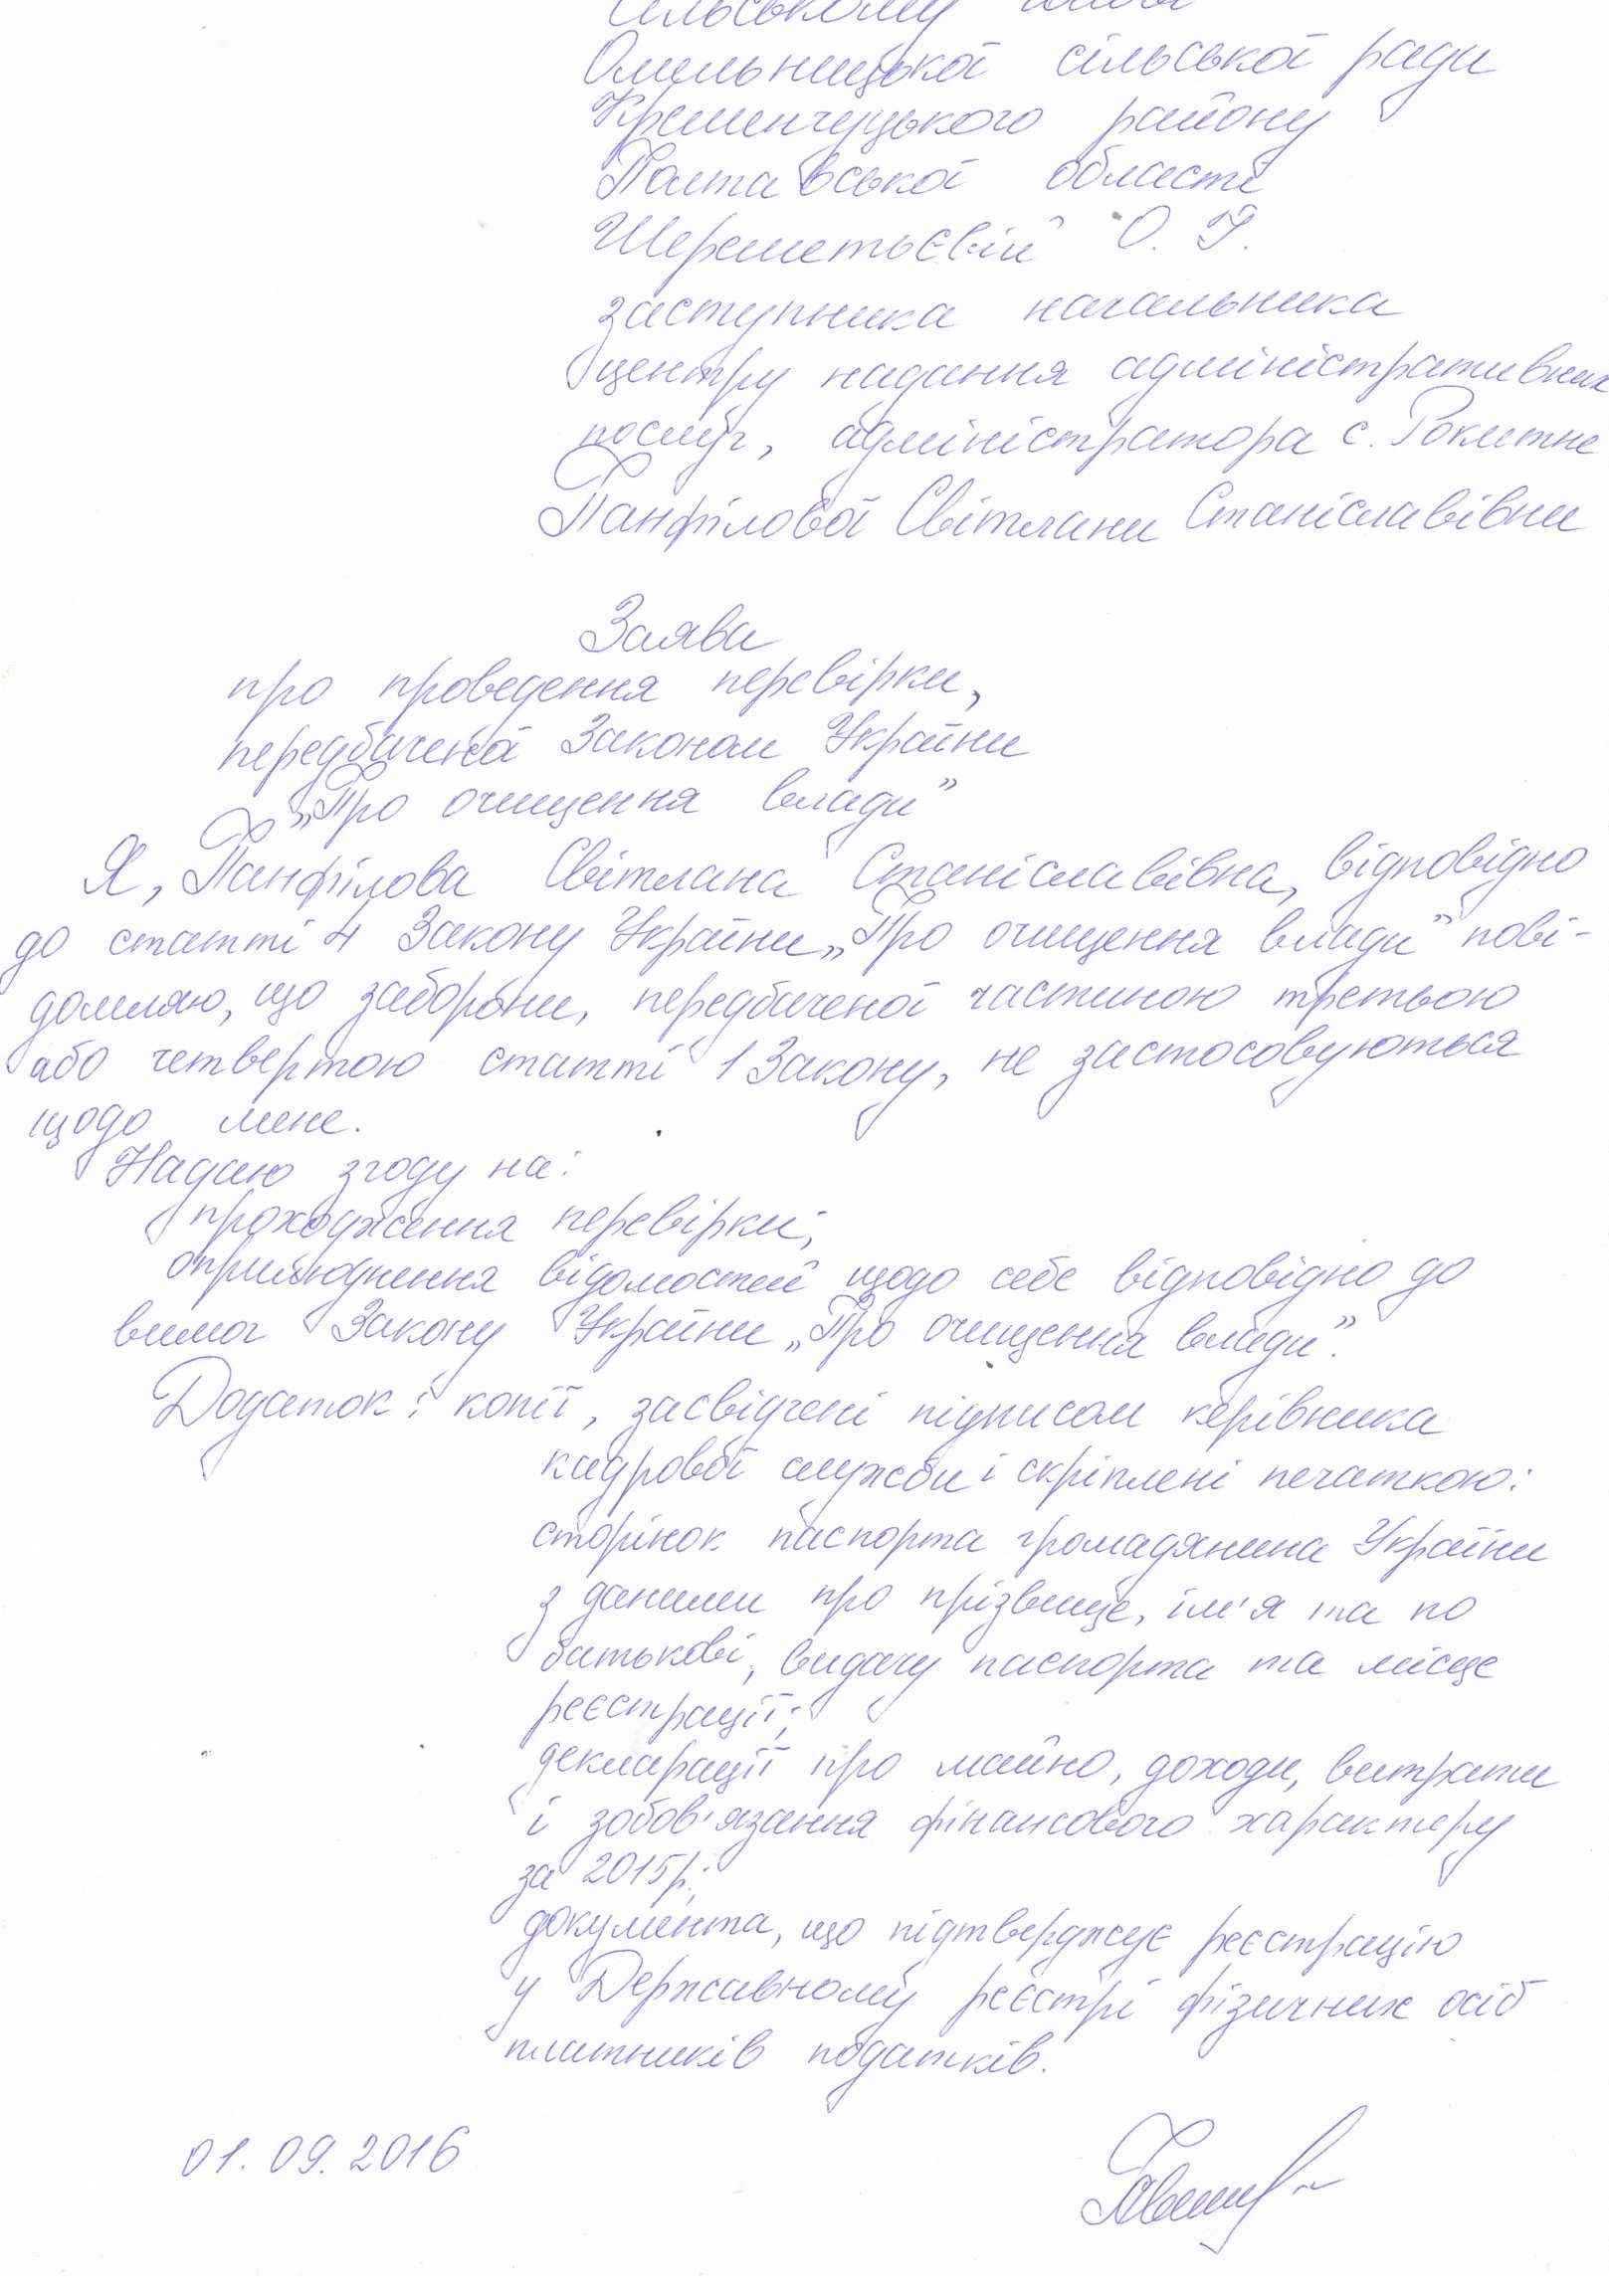 Сільському голові
Омельницької сільської ради
Кременчуцького району
Полтавської області
Шереметьєвій О. І.
заступника начальника
центру надання адміністративних
послуг, адміністратора с. Рокитне
Панфілової Світлани Станіславівни
Заява
про проведення перевірки,
передбаченої Законом України
„Про очищення влади”
Я, Панфілова Світлана Станіславівна, відповідно
до статті 4 Закону України „Про очищення влади” пові-
домляю, що заборони, передбаченої частиною третьою
або четвертою статті 1 Закону, не застосовуються
щодо мене.
Надаю згоду на:
проходження перевірки;
оприлюднення відомостей щодо себе відповідно до
вимог Закону України „Про очищення влади”.
Додаток: копії, засвідчені підписом керівника
кадрової служби і скріплені печаткою:
сторінок паспорта громадянина України
з даними про прізвище, ім'я та по
батькові, видачу паспорта та місце
реєстрації;
декларації про майно, доходи, витрати
і зобов'язання фінансового характеру
за 2015р.;
документа, що підтверджує реєстрацію
у Державному реєстрі фізичних осіб
платників податків.
01.09.2016